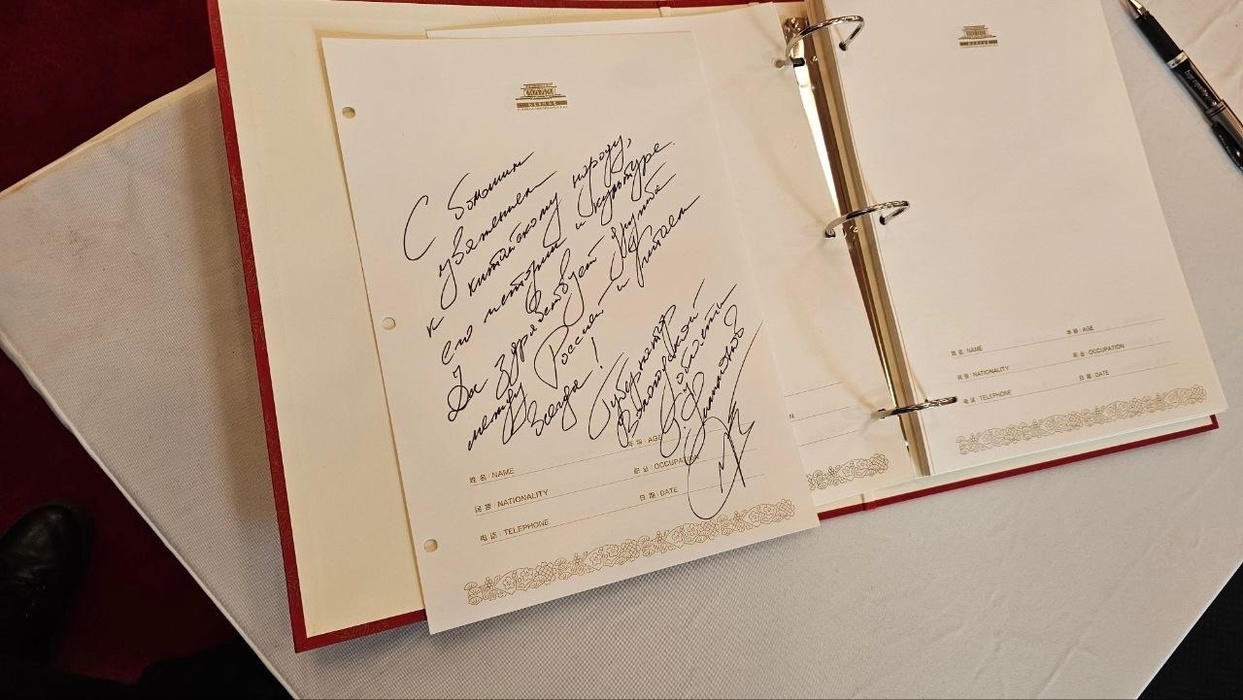 С большим
уважением
к китайскому народу,
его истории и культуре.
Да здравствует дружба
между Россией и Китаем
Всегда!
Губернатор
Вологодской
области
Г. Филимонов
姓名 : NAME
年龄 : AGE
民族 : NATIONALITY
职业 : OCCUPATION
电话 : TELEPHONE
日期 : DATE
姓名 : NAME
年龄 : AGE
民族 : NATIONALITY
职业 : OCCUPATION
电话 : TELEPHONE
日期 : DATE